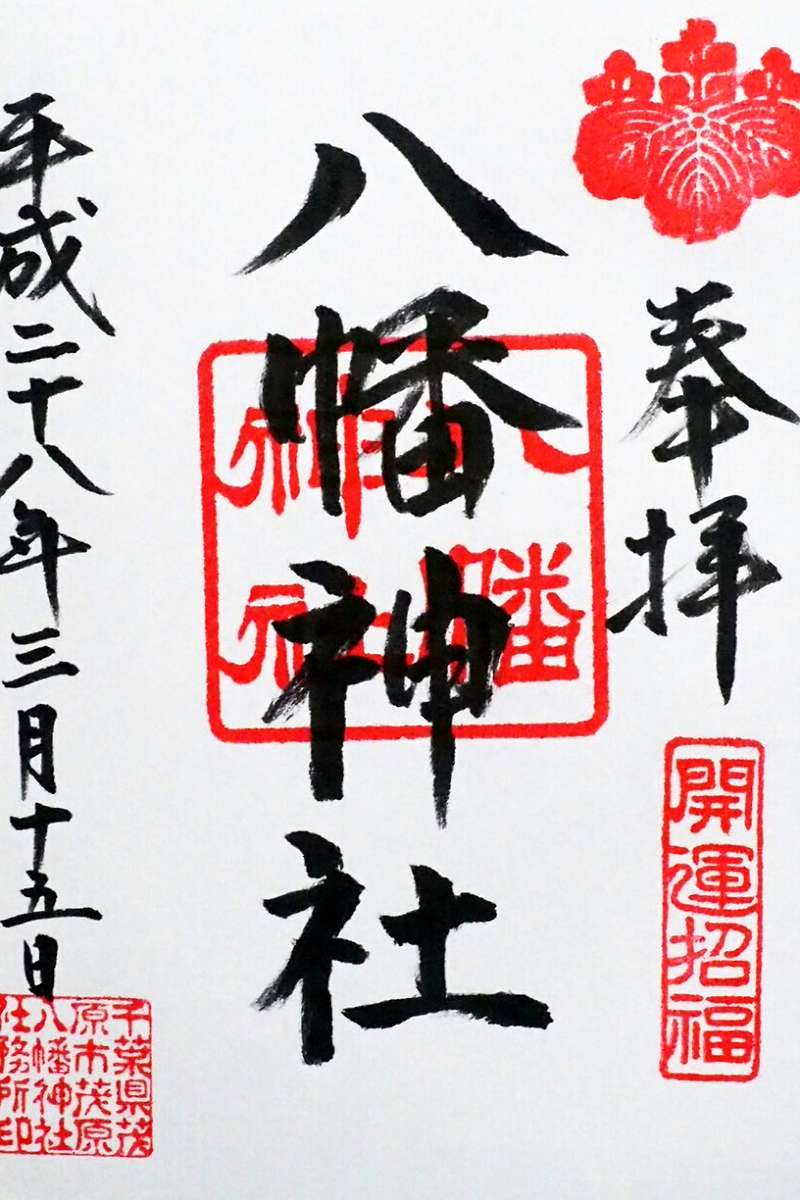 奉拝
開運招福
八幡神社
八幡
神社
平成二十八年三月十五日
千葉県茂
原市茂原
八幡神社
社務所印